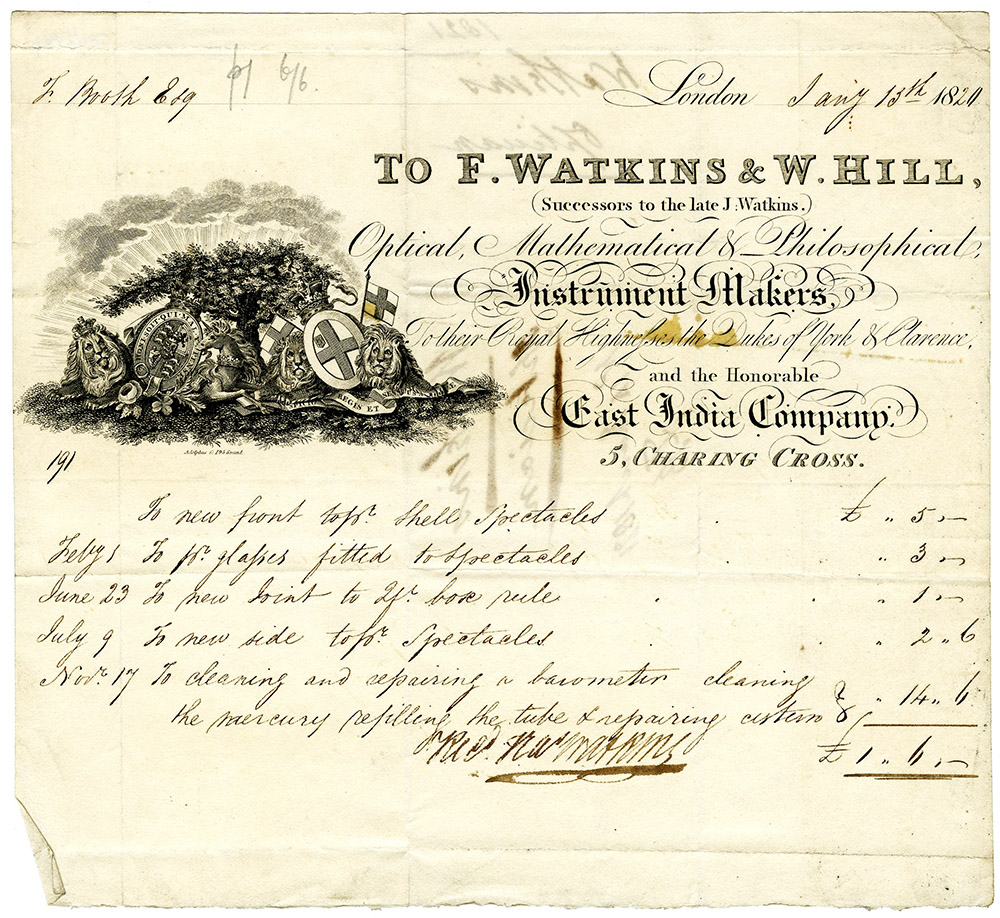 F. Booth Esq
6/6.
London Jany 13th 1820
TO F. WATKINS & W. HILL,
(Successors to the late J. Watkins.)
Optical, Mathematical & Philosophical,
Instrument Makers,
To their Royal Highnesses the Dukes of York & Clarence,
and the Honorable
East India Company.
5, CHARING CROSS.
REGIS ET
191
To new front to pr. shell spectacles £ " 5 " —
Feby 1 To pr. glasses fitted to spectacles " 3 " —
June 23 To new Joint to 2 ft. box rule " 1 " —
July 9 To new side to pr. spectacles " 2 " 6
Novr. 17 To cleaning and repairing a barometer cleaning
the mercury refilling the tube & repairing cistern " 14 " 6
Watkins
£ 1 " 6 " —